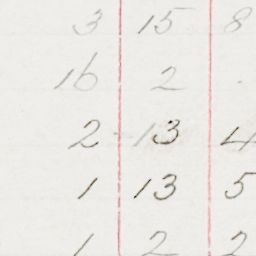 3 15 8
16 2 .
2 13 4
1 13 5
1 2 2